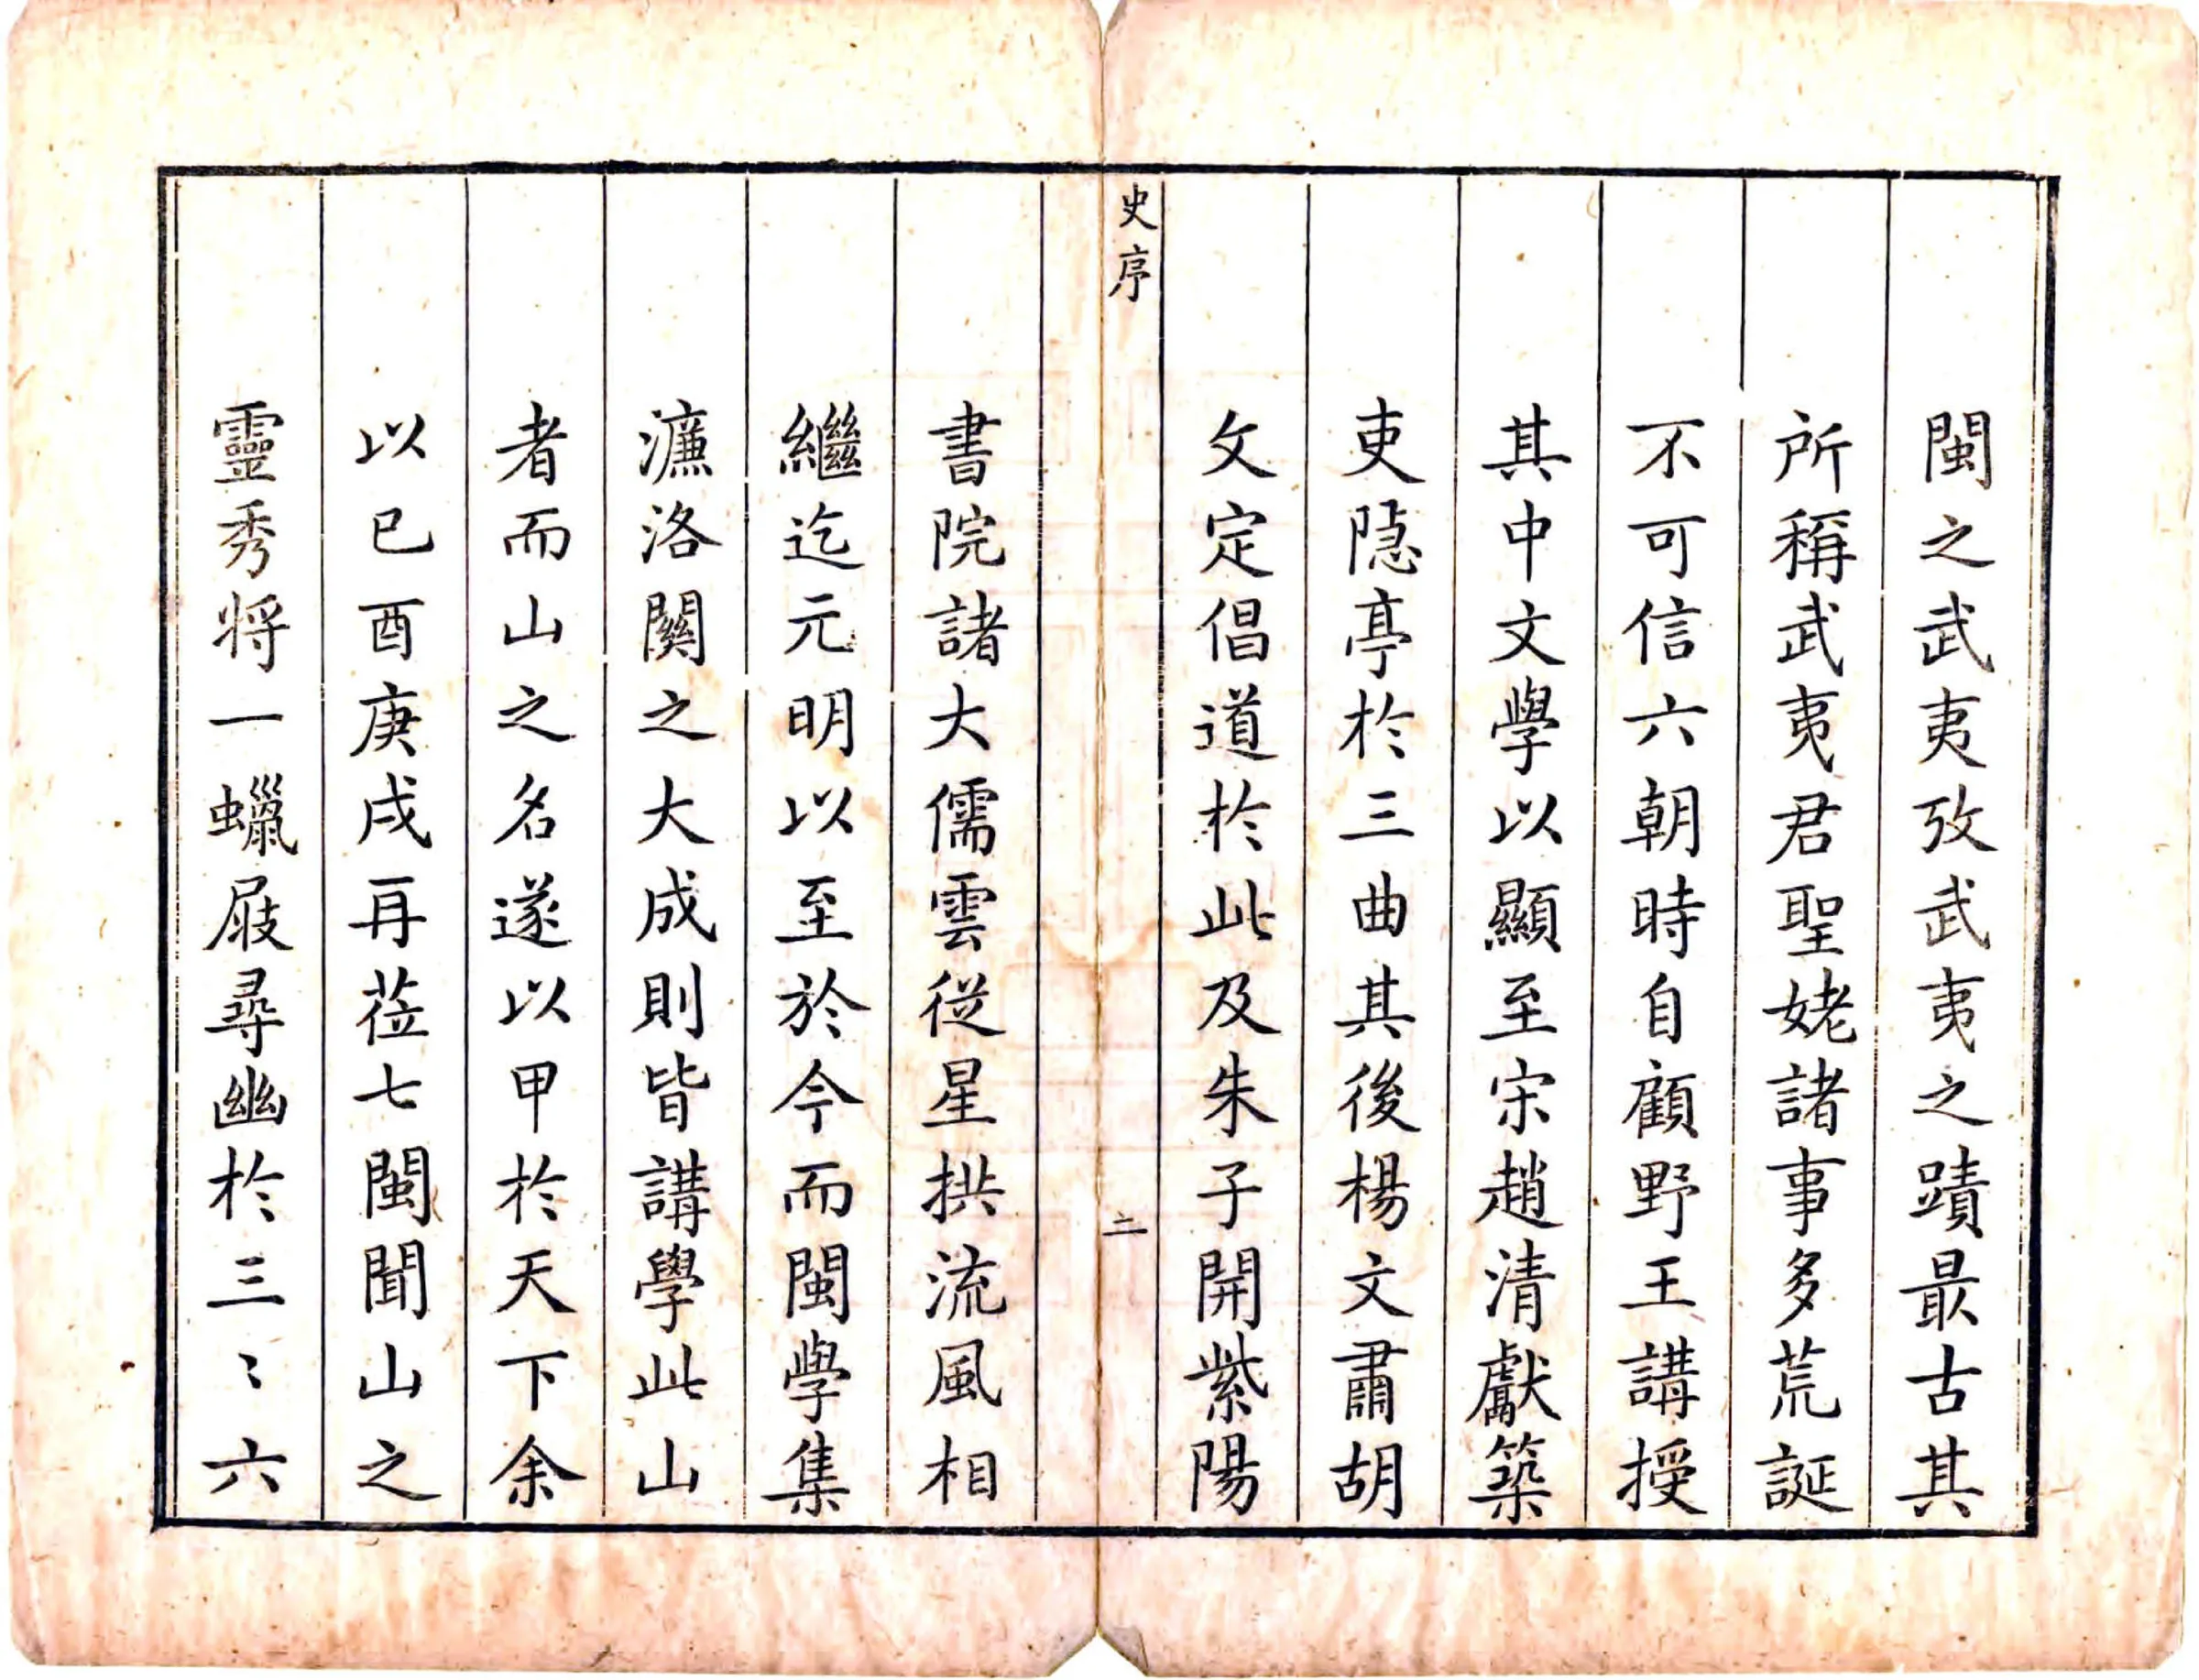 閩之武夷攷武夷之蹟最古其
所稱武夷君聖姥諸事多荒誕
不可信六朝時自顧野王講授
其中文學以顯至宋趙清獻築
吏隱亭於三曲其後楊文肅胡
文定倡道於此及朱子開紫陽
史序
二
書院諸大儒雲從星拱流風相
繼迄元明以至於今而閩學集
濂洛關之大成則皆講學此山
者而山之名遂以甲於天下余
以已酉庚戌再莅七閩聞山之
靈秀将一蠟屐尋幽於三〻六